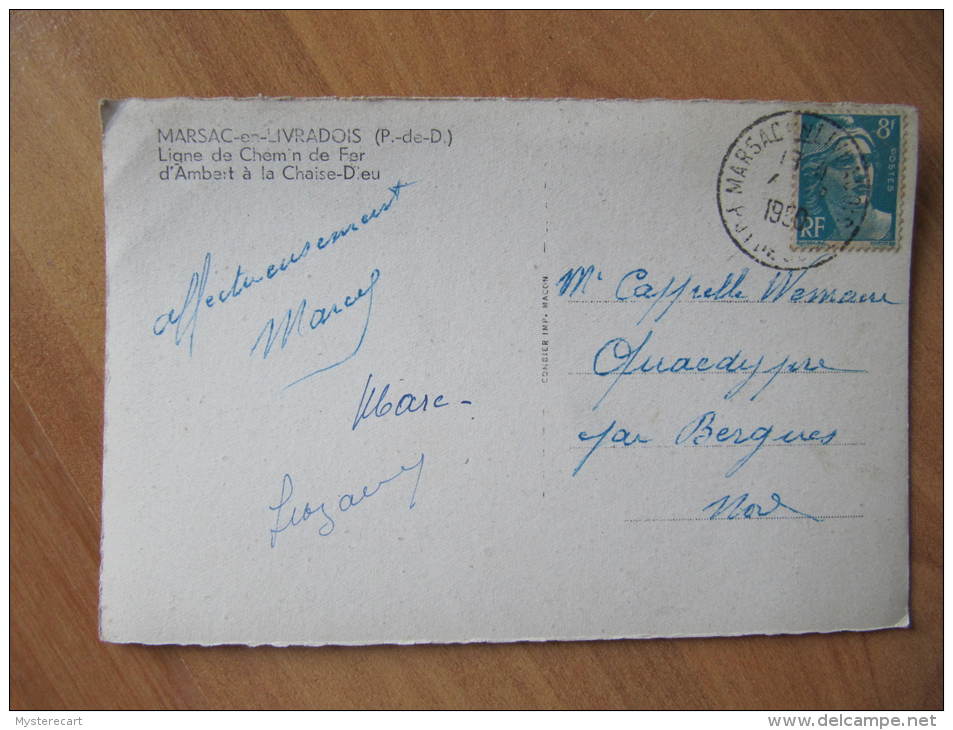 MARSAC-en-LIVRADOIS (P.-de-D.)
Ligne de Chemin de Fer
d'Ambert à la Chaise-Dieu
affectueusement
Marcel
Marc -
COMBIER IMP. MACON
MARSAC EN LIVRADOIS
1950
8F
POSTES
RF
Mr Cappelle Wemaere
Quaedypre
par Bergues
Nord
Mysterecart
www.delcampe.net